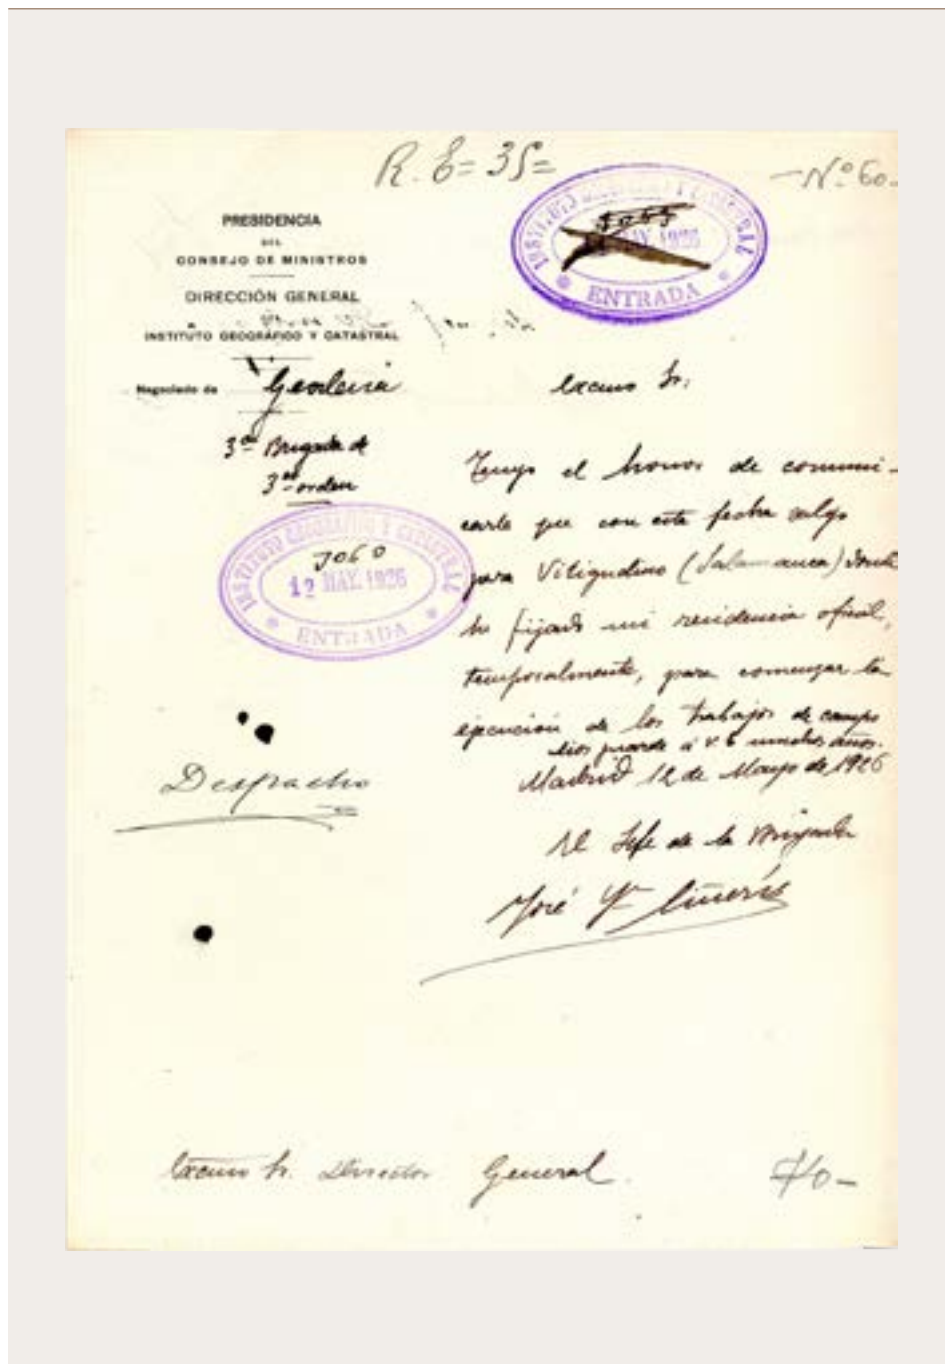 R. E= 35=
-Nº 60-
PRESIDENCIA
DEL
CONSEJO DE MINISTROS
DIRECCIÓN GENERAL
INSTITUTO GEOGRÁFICO Y CATASTRAL
Negociado de Geodesia
3ª Brigada de
3er orden
INSTITUTO GEOGRÁFICO Y CATASTRAL
MAY. 1926
ENTRADA
INSTITUTO GEOGRÁFICO Y CATASTRAL
3060
12 MAY. 1926
ENTRADA
Despacho
Excmo Sr:
Tengo el honor de comuni-
carle que con esta fecha salgo
para Vitigudino (Salamanca) donde
he fijado mi residencia oficial,
temporalmente, para comenzar la
ejecución de los trabajos de campo
Dios guarde á V. E muchos años.
Madrid 12 de Mayo de 1926
El Jefe de la Brigada
José
Excmo Sr. Director General.